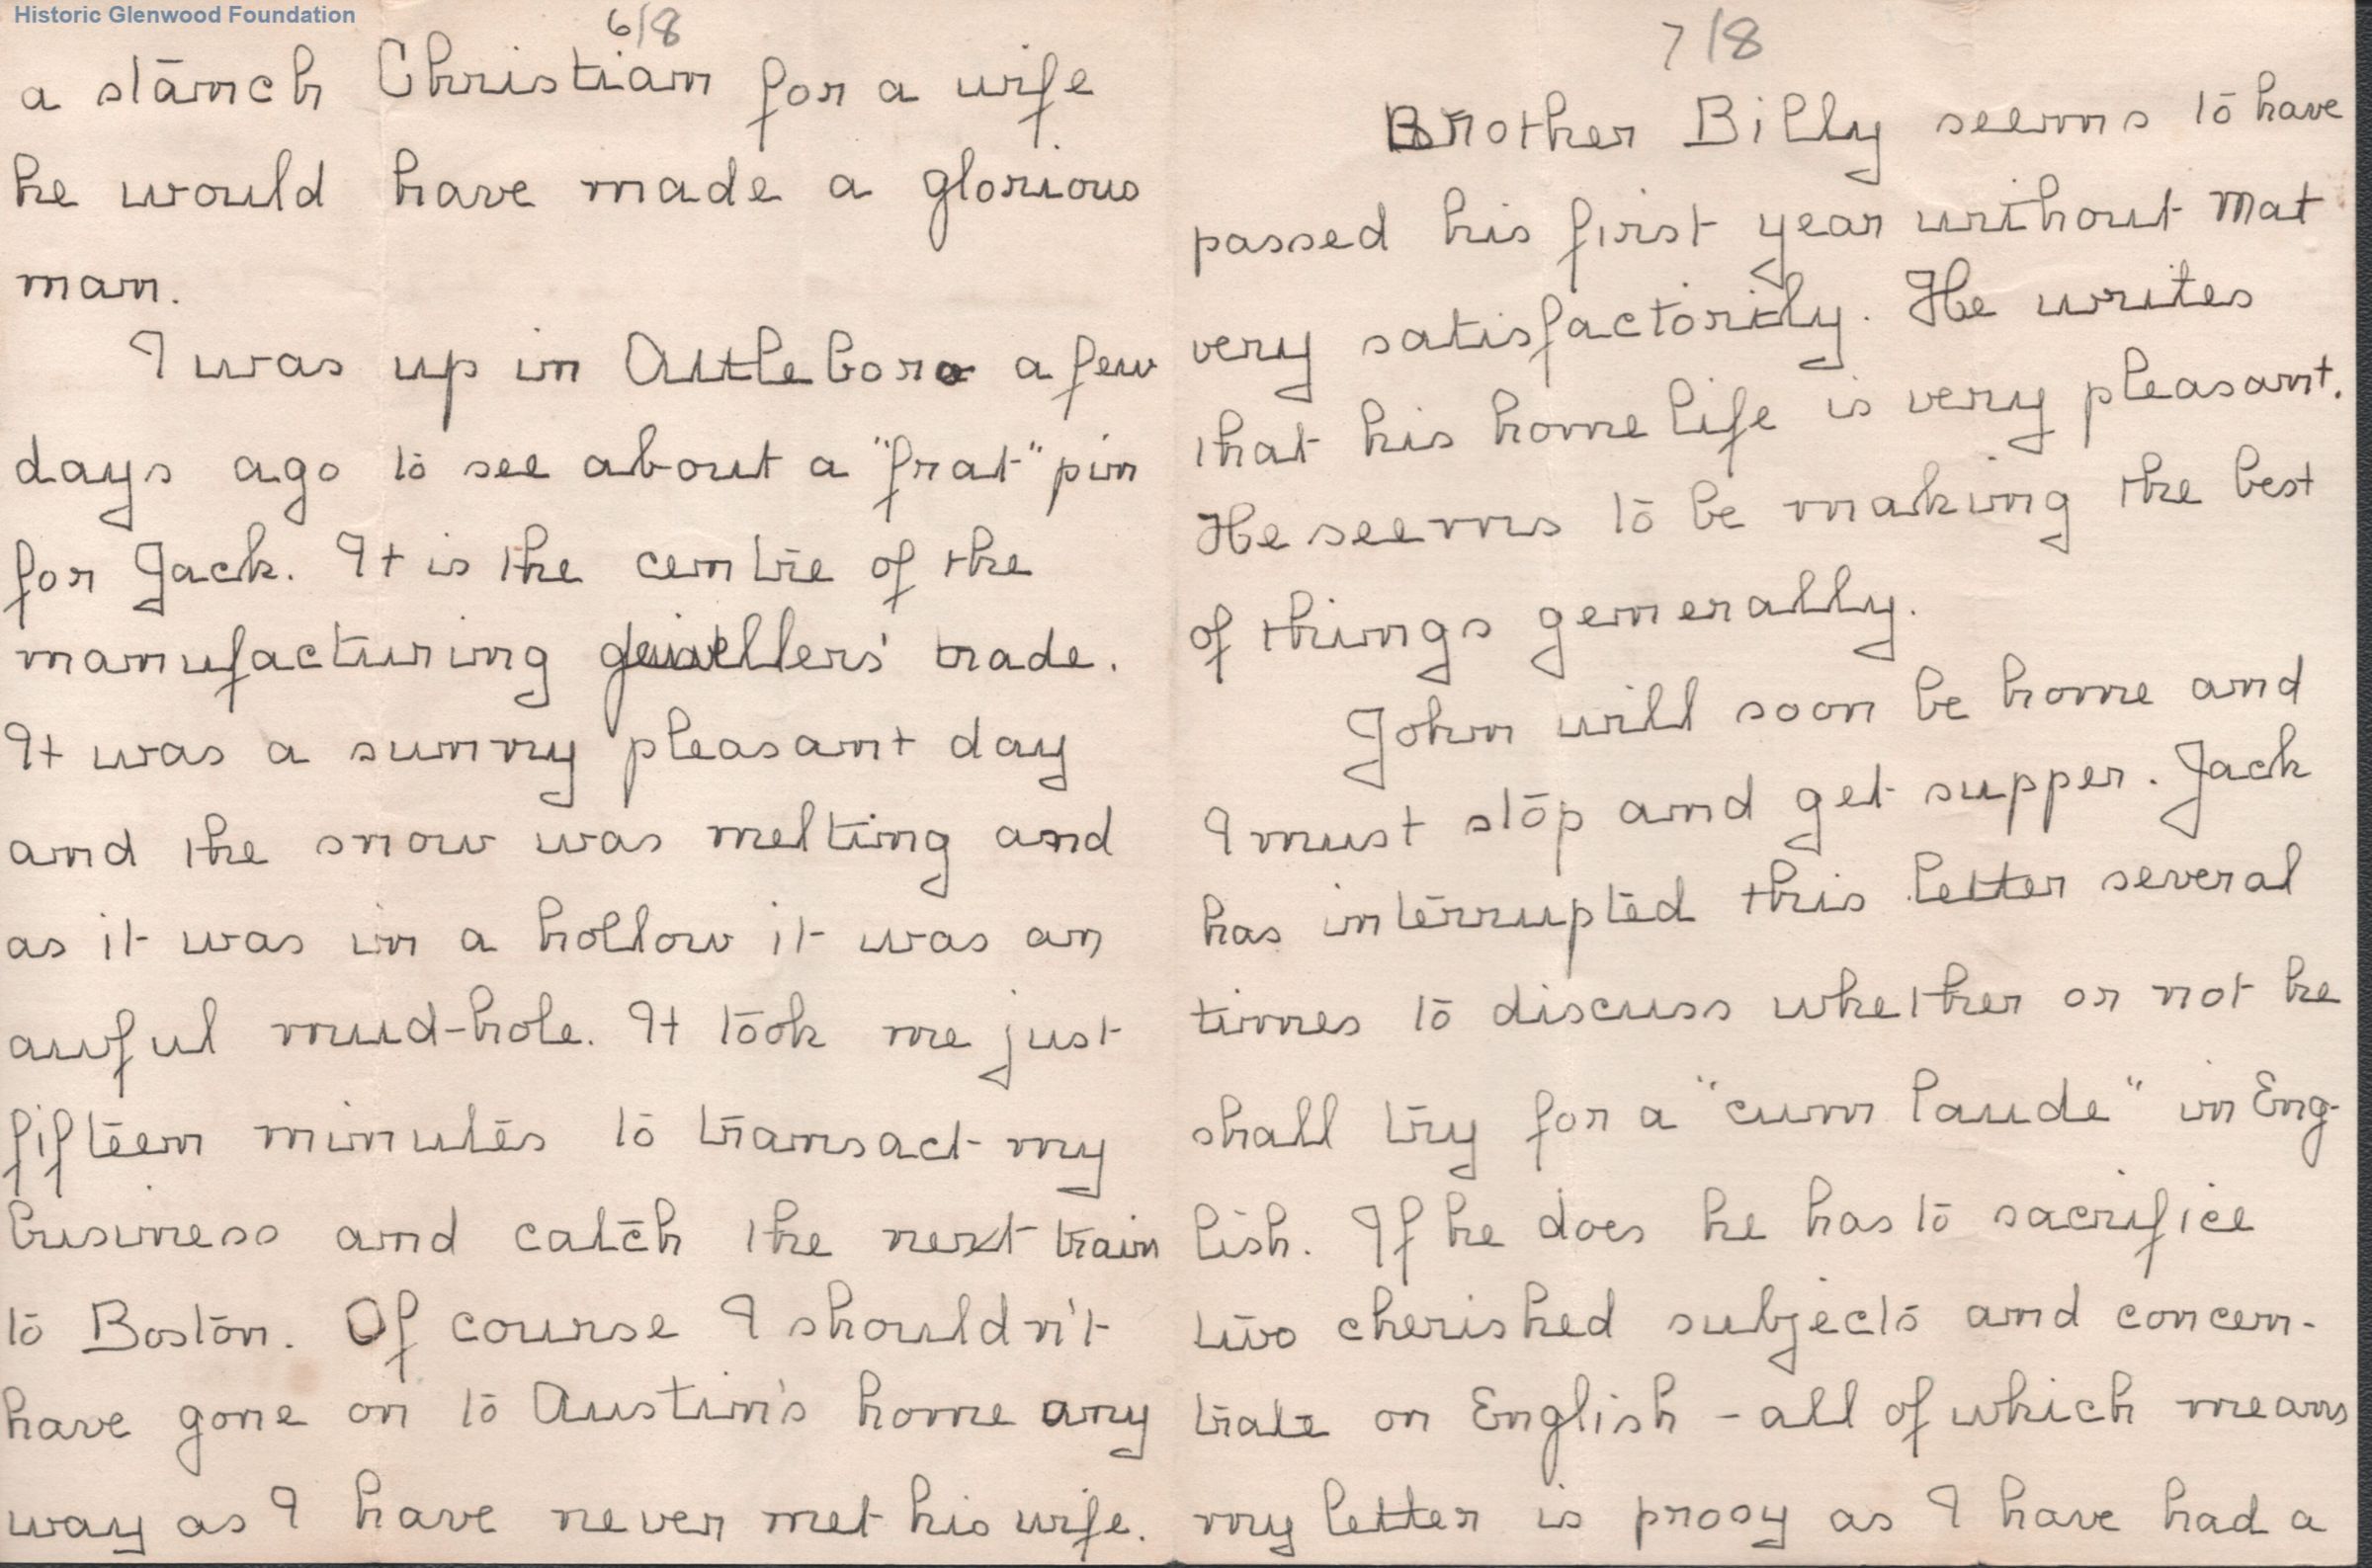 Historic Glenwood Foundation
6/8
a stanch Christian for a wife
he would have made a glorious
man.
I was up in Attleboro a few
days ago to see about a "frat" pin
for Jack. It is the centre of the
manufacturing jewellers' trade.
It was a sunny pleasant day
and the snow was melting and
as it was in a hollow it was an
awful mud-hole. It took me just
fifteen minutes to transact my
business and catch the next train
to Boston. Of course I shouldn't
have gone on to Austin's home any
way as I have never met his wife.
7/8
Brother Billy seems to have
passed his first year without Mat
very satisfactorily. He writes
that his home life is very pleasant.
He seems to be making the best
of things generally.
John will soon be home and
I must stop and get supper. Jack
has interrupted this letter several
times to discuss whether or not he
shall try for a "cum laude" in Eng-
lish. If he does he has to sacrifice
two cherished subjects and concen-
trate on English - all of which means
my letter is prosy as I have had a